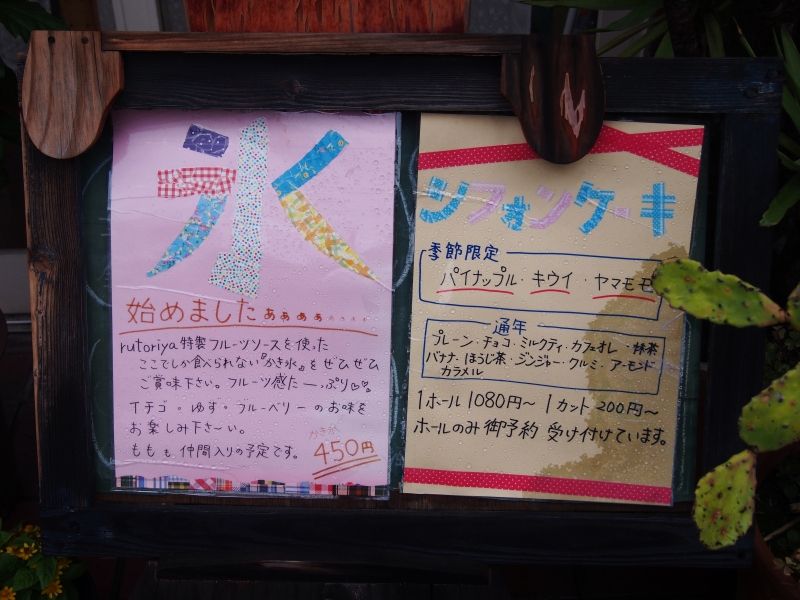 氷
始めましたぁぁぁぁぁぁぁぁ
rutoriya特製フルーツソースを使った
ここでしか食べられない『かき氷』をぜひぜひ
ご賞味下さい。フルーツ感たーっぷり♡♡
イチゴ・ゆず・ブルーベリーのお味を
お楽しみ下さ〜い。
ももも仲間入りの予定です。
かき氷
450円
シフォンケーキ
季節限定
パイナップル・キウイ・ヤマモモ
通年
プレーン・チョコ・ミルクティ・カフェオレ・抹茶
バナナ・ほうじ茶・ジンジャー・クルミ・アーモンド
カラメル
1ホール1080円〜 1カット200円〜
ホールのみ御予約受け付けています。